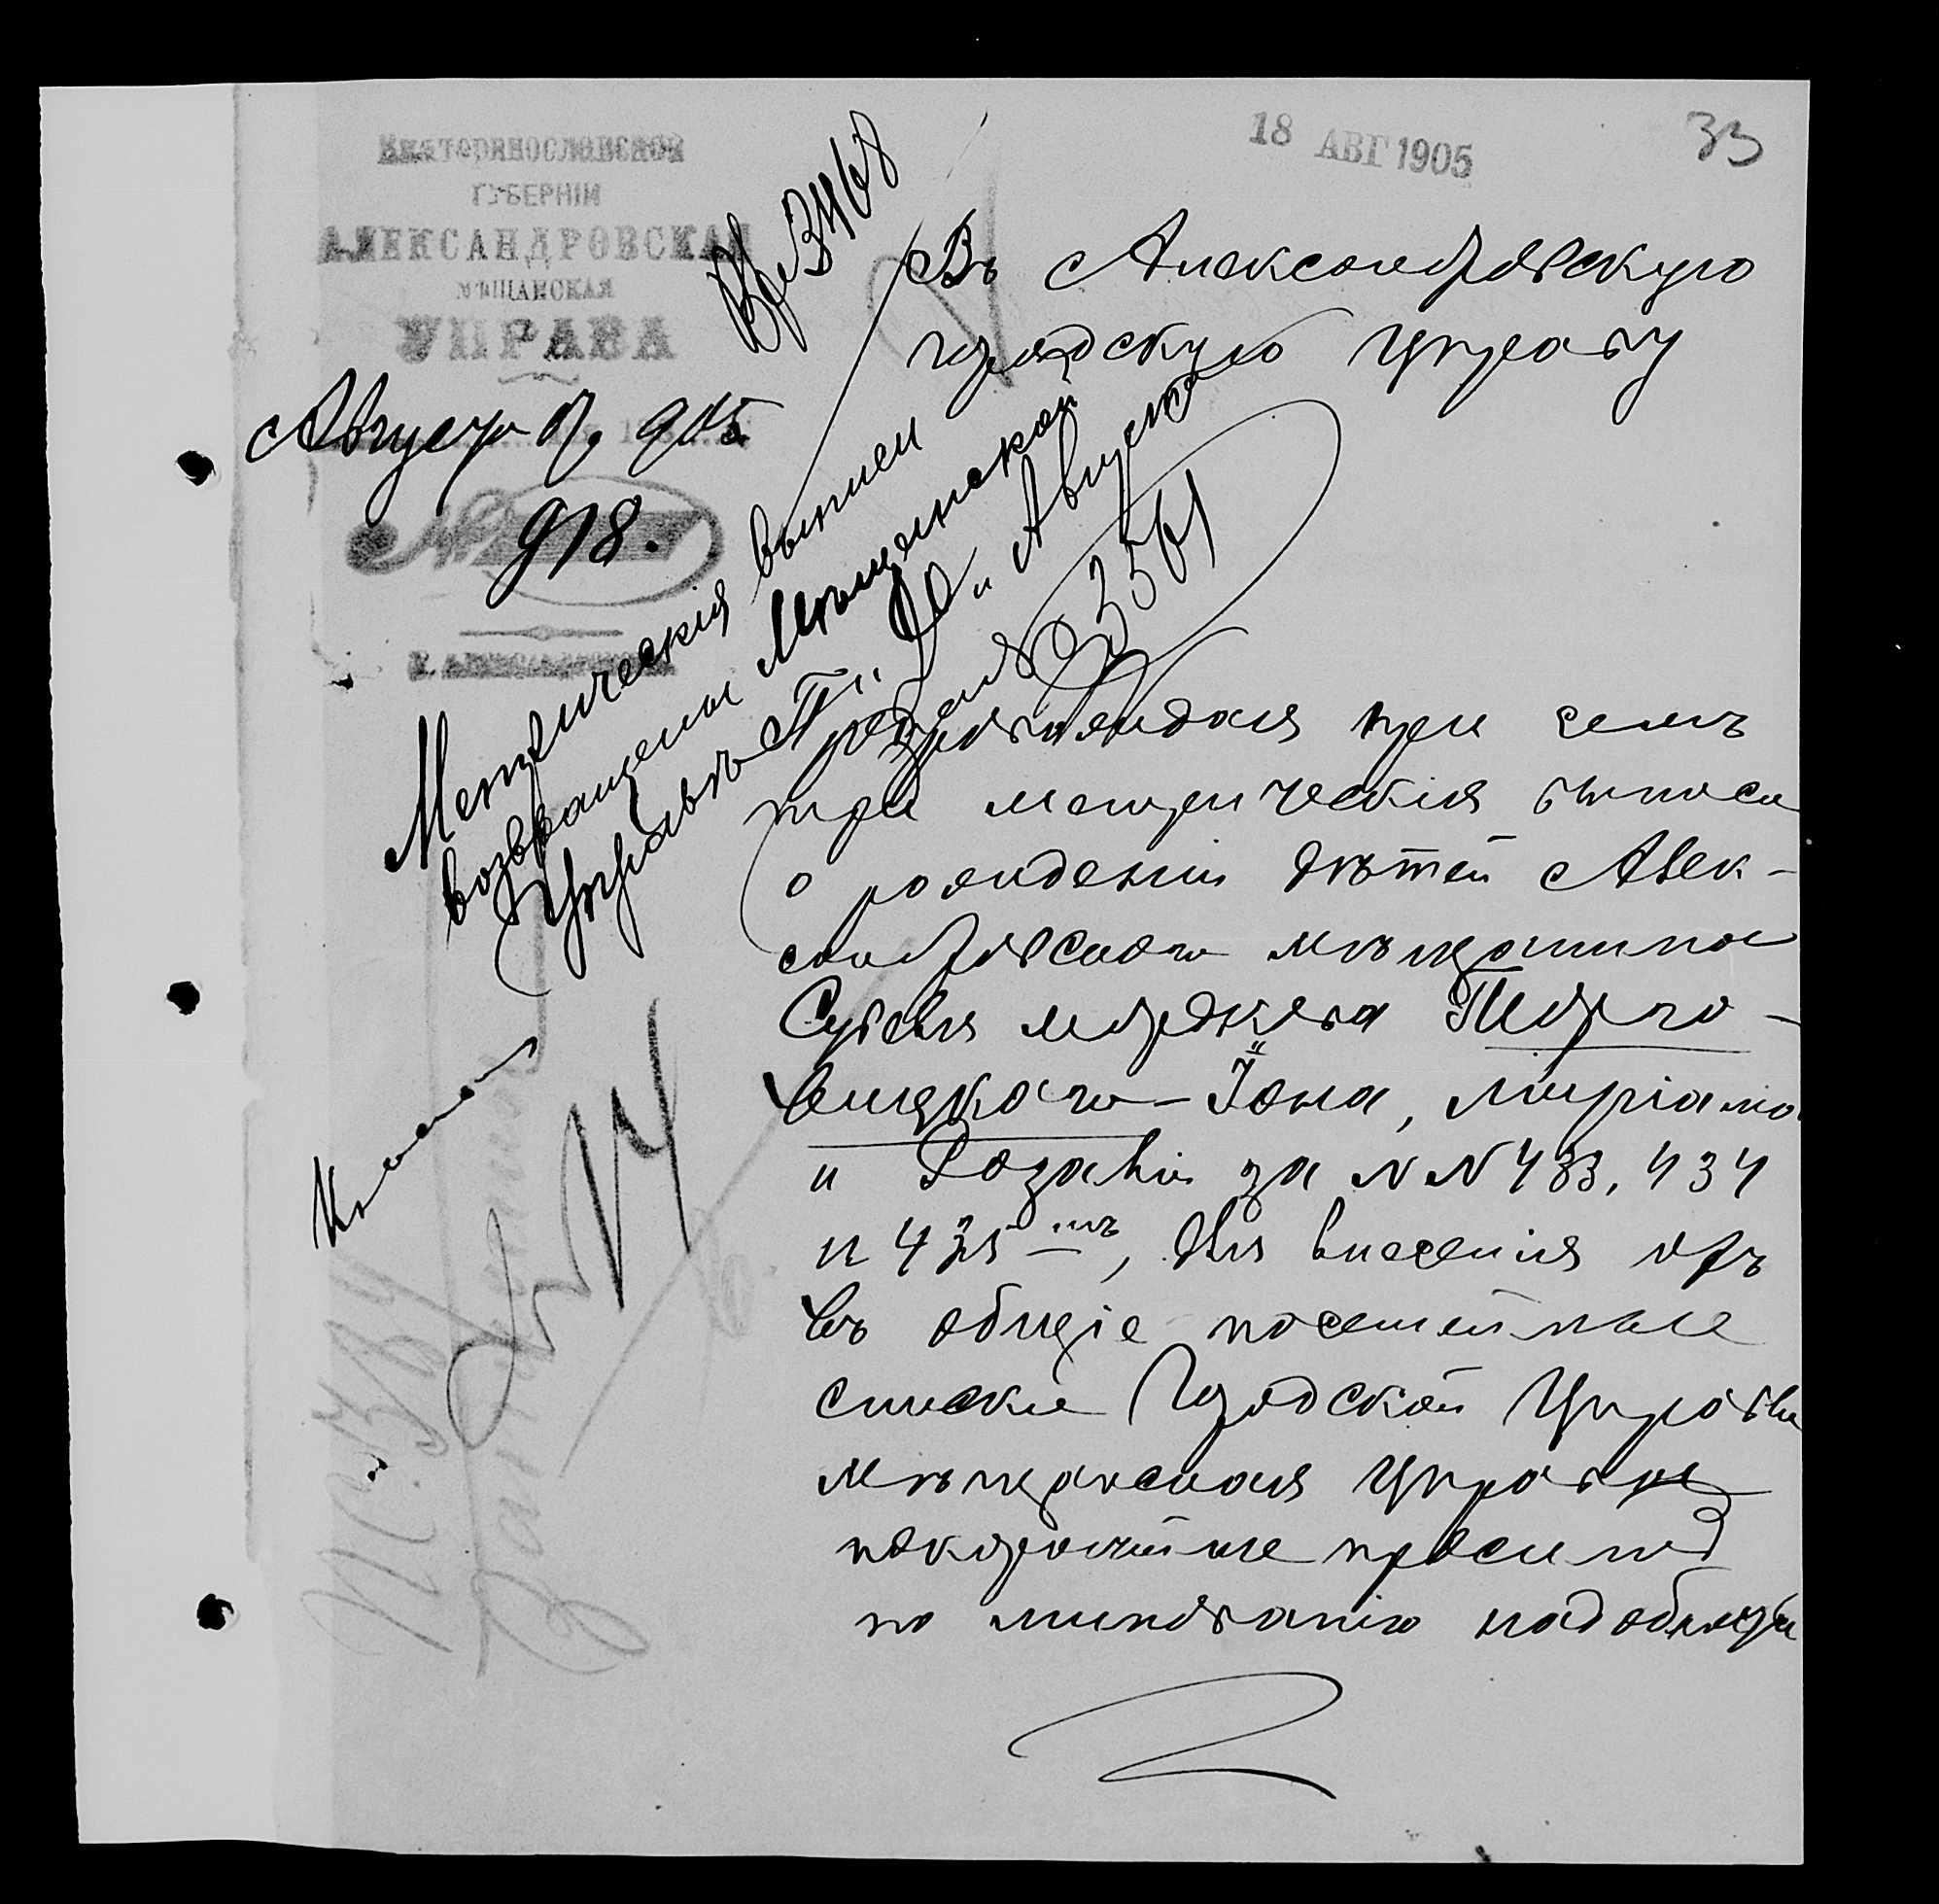 Екатеринославской
ГУБЕРНІИ
АЛЕКСАНДРОВСКАЯ
МѢЩАНСКАЯ
УПРАВА
Августа 17 905
№ 918.
Г. АЛЕКСАНДРОВСКЪ
18 АВГ 1905
33
Вх 3468
Въ Александровскую
городскую Управу
Метрическія выписи
возвращены Мѣщанской
Управѣ при “20„ Августа
за № 3561
Препровождая при семъ
три метрическія выписи
о рожденіи дѣтей Алек-
сандровского мѣщанина
Сурселя мордкова Подго-
вицкаго - Іона, Миріама
и Розалія за №№ 433, 434
и 435 мъ, для внесенія ихъ
въ общіе посемейные
списки Городской Управы
мѣщанская Управа
покорнѣйше проситъ
по минованію надобности